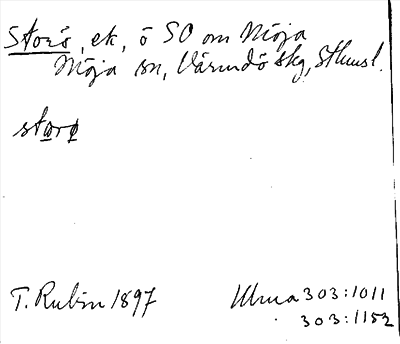 Storö, ek, ö SO om Möja
Möja sn, Värmdö skg, Sthmsl.
storø
T. Rubin 1897
Ulma 303:1011
303:1152